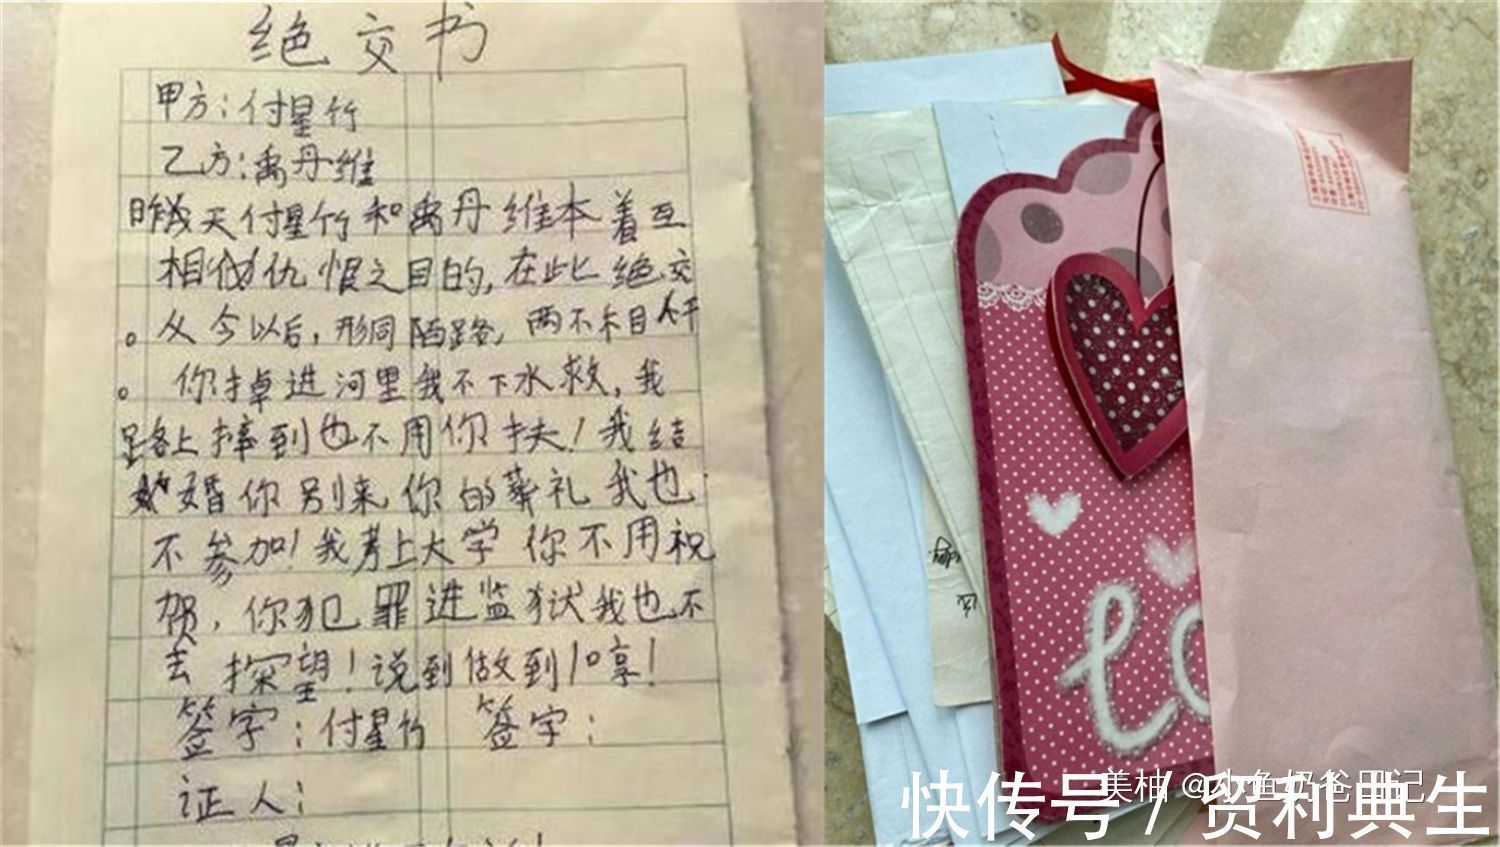 绝交书
甲方：付星竹
乙方：禹丹维
昨天付星竹和禹丹维本着互
相仇恨之目的，在此绝交
。从今以后，形同陌路，两不相干
。你掉进河里我不下水救，我
路上摔到也不用你扶！我结
婚你别来你的葬礼我也
不参加！我考上大学你不用祝
贺，你犯罪进监狱我也不
去探望！说到做到
签字：付星竹 签字：
证人：
美柚 @小鱼奶爸日记
快传号 / 贸利典生